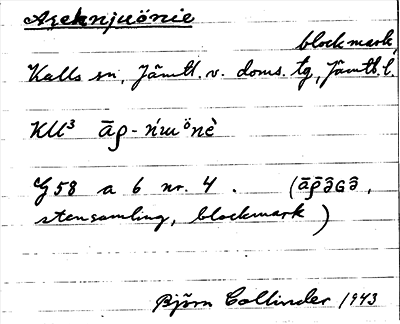 Areknjuönie
blockmark,
Kalls sn, Jämtl. v. doms. tg, Jämtl. l.
KU³ āρ-ńɯönè
G 58 a 6 nr. 4. (āρ̄əGə,
stensamling, blockmark)
Björn Collinder 1943